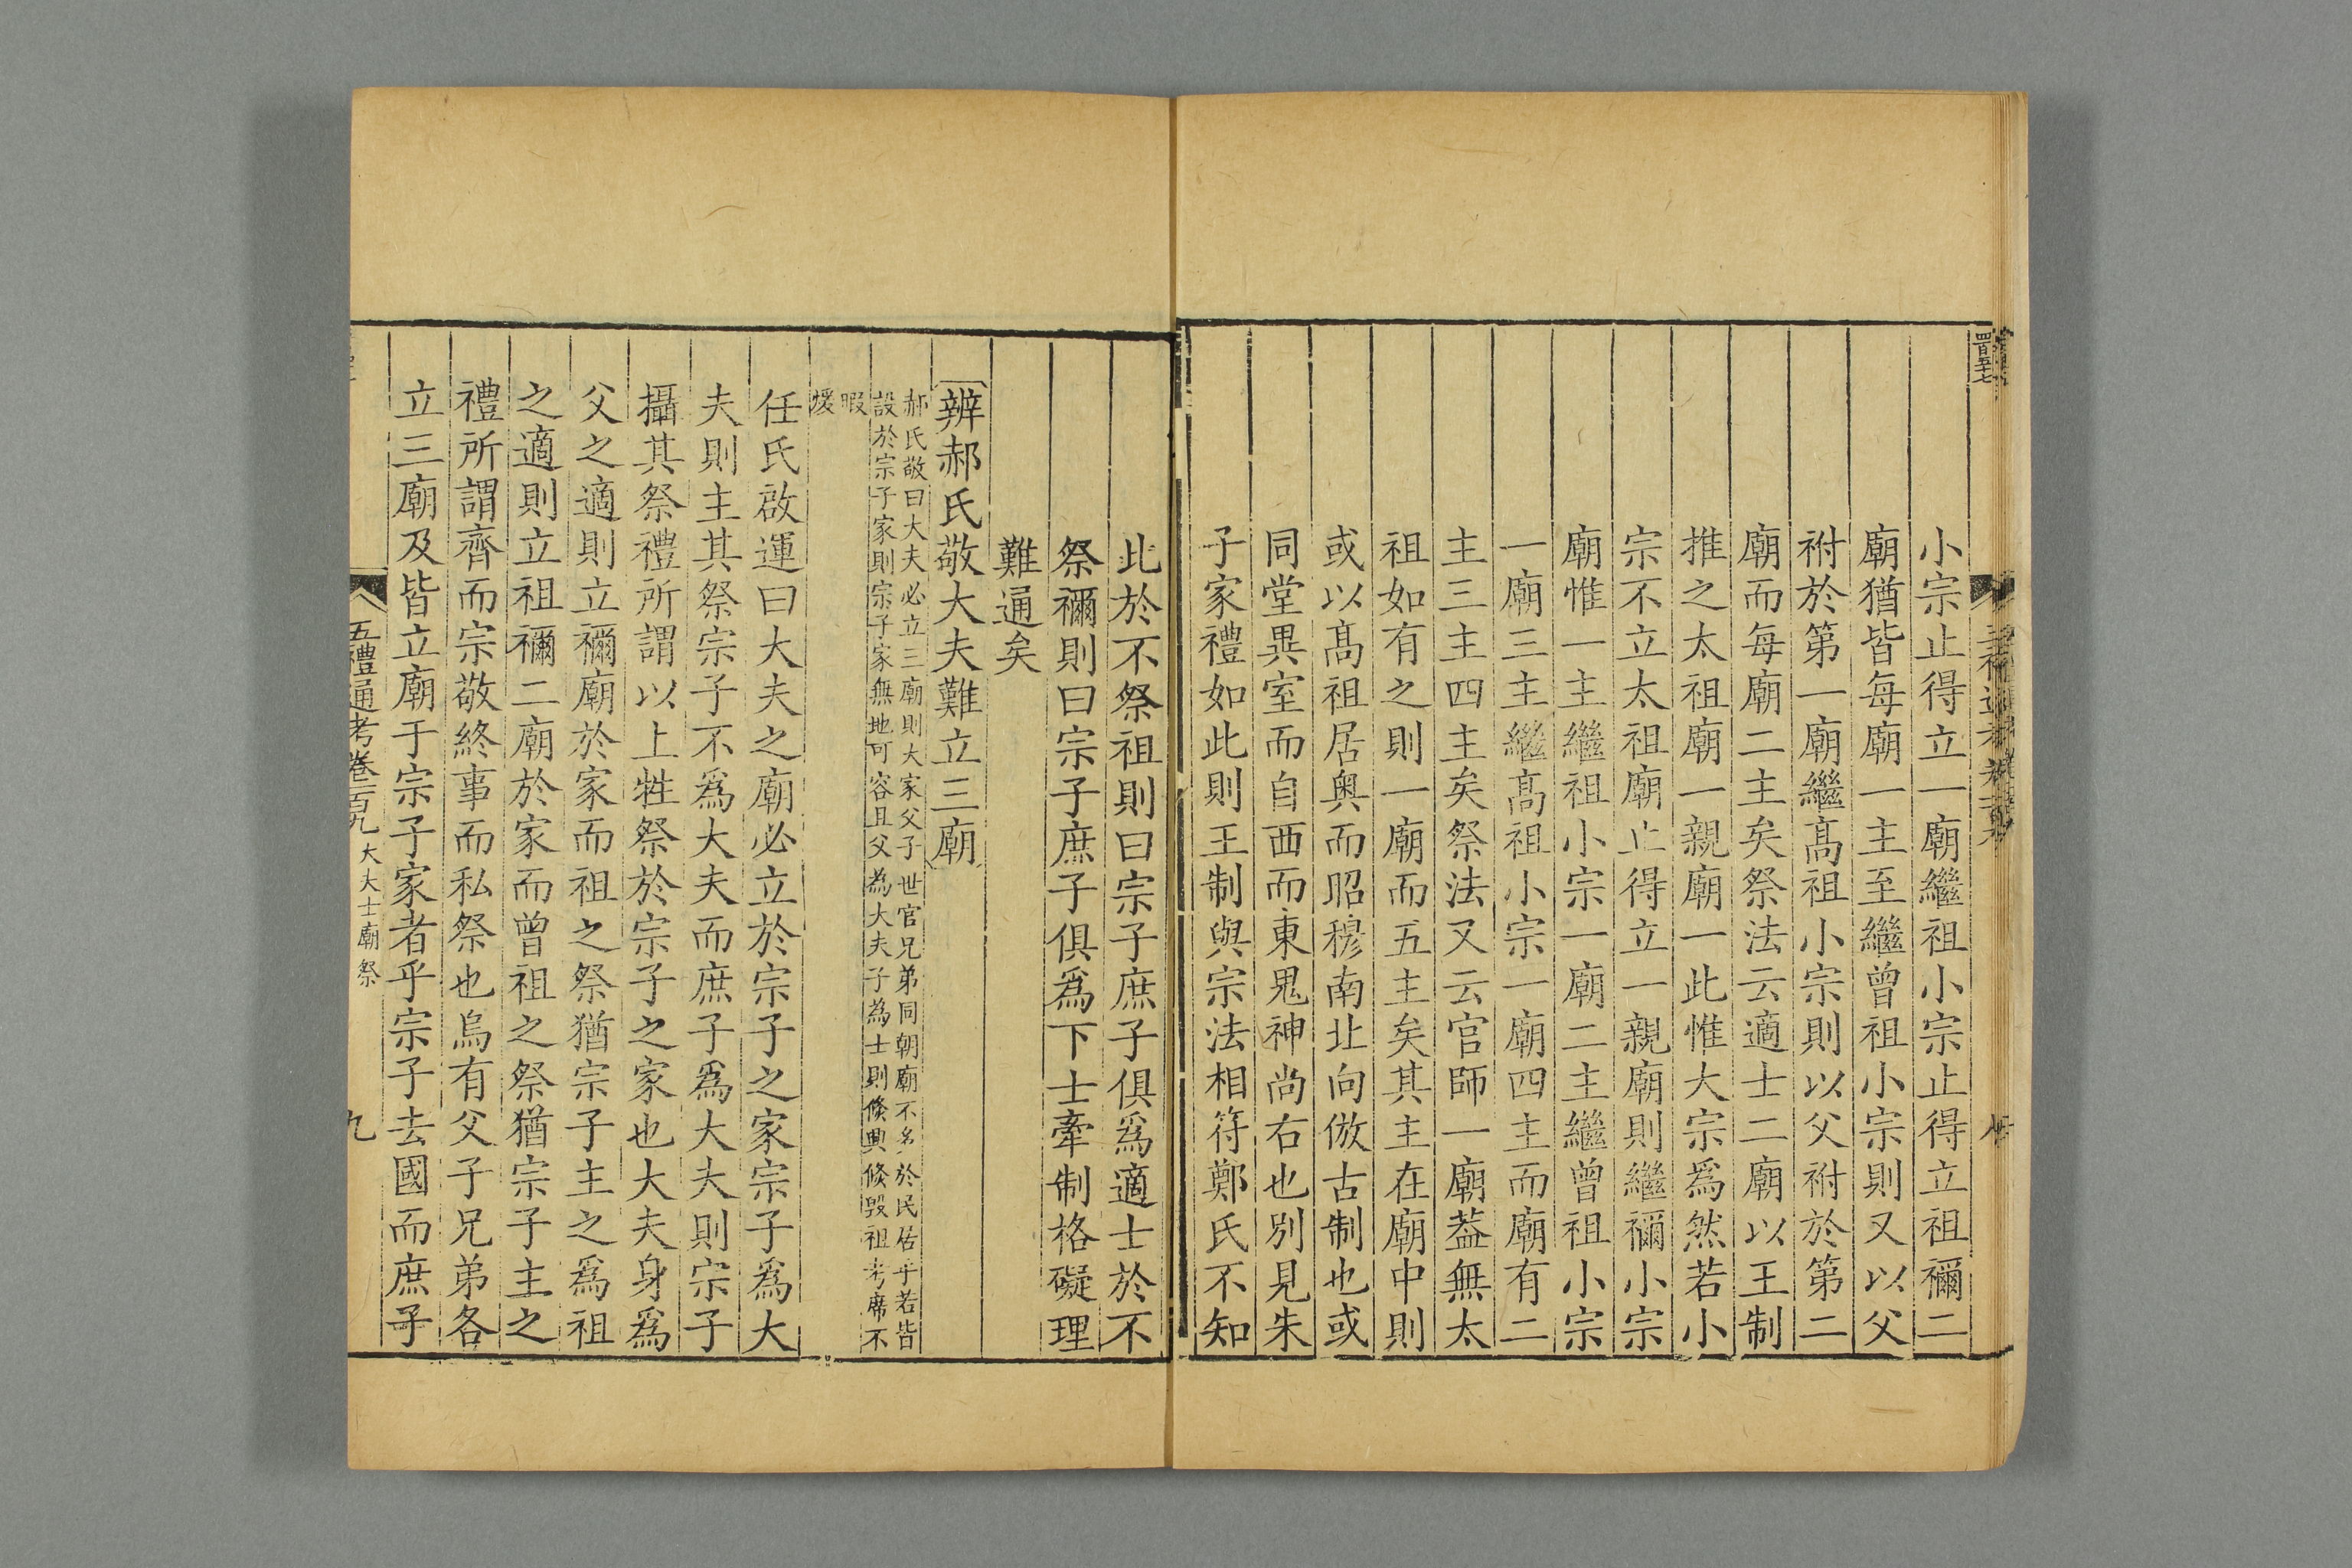 四百五十七
小宗止得立一廟繼祖小宗止得立祖禰二
廟猶皆每廟一主至繼曾祖小宗則又以父
祔於第一廟繼髙祖小宗則以父祔於第二
廟而每廟二主矣祭法云適士二廟以王制
推之太祖廟一親廟一此惟大宗爲然若小
宗不立太祖廟止得立一親廟則繼禰小宗
廟惟一主繼祖小宗一廟二主繼曾祖小宗
一廟三主繼髙祖小宗一廟四主而廟有二
主三主四主矣祭法又云官師一廟葢無太
祖如有之則一廟而五主矣其主在廟中則
或以髙祖居奥而昭穆南北向倣古制也或
同堂異室而自西而東鬼神尚右也別見朱
子家禮如此則王制與宗法相符鄭氏不知
此於不祭祖則曰宗子庶子俱爲適士於不
祭禰則曰宗子庶子俱爲下士牽制格礙理
難通矣
辨郝氏敬大夫難立三廟
郝氏敬曰大夫必立三廟則大家父子世官兄弟同朝廟不多於民居乎若皆
設於宗子家則宗子家無地可容且父為大夫子為士則倐興倐毁祖考席不
暇
煖
任氏啟運曰大夫之廟必立於宗子之家宗子爲大
夫則主其祭宗子不爲大夫而庶子爲大夫則宗子
攝其祭禮所謂以上牲祭於宗子之家也大夫身爲
父之適則立禰廟於家而祖之祭猶宗子主之爲祖
之適則立祖禰二廟於家而曾祖之祭猶宗子主之
禮所謂齊而宗敬終事而私祭也烏有父子兄弟各
立三廟及皆立廟于宗子家者乎宗子去國而庶子
五禮通考卷一百九 大夫士廟祭
九